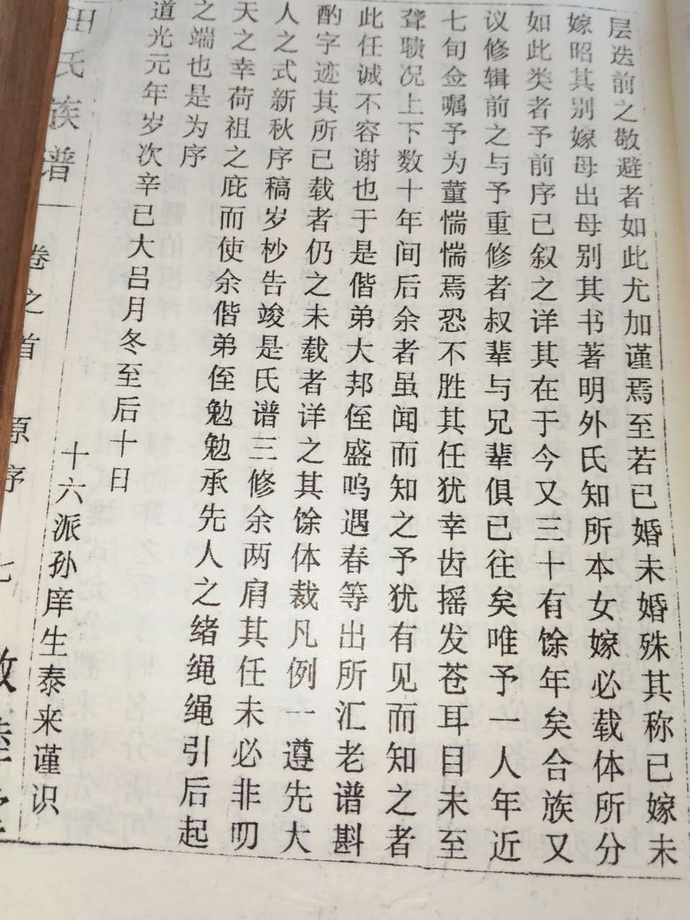 层迭前之敬避者如此尤加谨焉至若已婚未婚殊其称已嫁未
嫁昭其别嫁母出母别其书著明外氏知所本女嫁必载体所分
如此类者予前序已叙之详其在于今又三十有馀年矣合族又
议修辑前之与予重修者叔辈与兄辈俱已往矣唯予一人年近
七旬佥嘱予为董惴惴焉恐不胜其任犹幸齿摇发苍耳目未至
聋聩况上下数十年间后余者虽闻而知之予犹有见而知之者
此任诚不容谢也于是偕弟大邦侄盛鸣遇春等出所汇老谱斟
酌字迹其所已载者仍之未载者详之其馀体裁凡例一遵先大
人之式新秋序稿岁杪告竣是氏谱三修余两肩其任未必非叨
天之幸荷祖之庇而使余偕弟侄勉勉承先人之绪绳绳引后起
之端也是为序
道光元年岁次辛巳大吕月冬至后十日
十六派孙庠生泰来谨识
田氏族谱 卷之首 原序 七